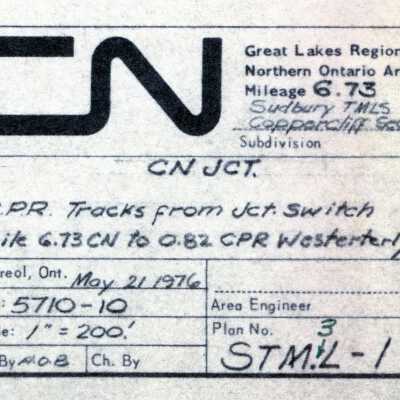 CN
Great Lakes Region
Northern Ontario Ar
Mileage 6.73
Sudbury TMLS
Coppercliff
Subdivision
CN JCT.
.P.R. Tracks from Jct. Switch
ile 6.73 CN to 0.82 CPR Westerterly
reol, Ont. May 21 1976
: 5710-10
Area Engineer
e: 1" = 200'
Plan No. 3
By Ch. By
STM.L-1